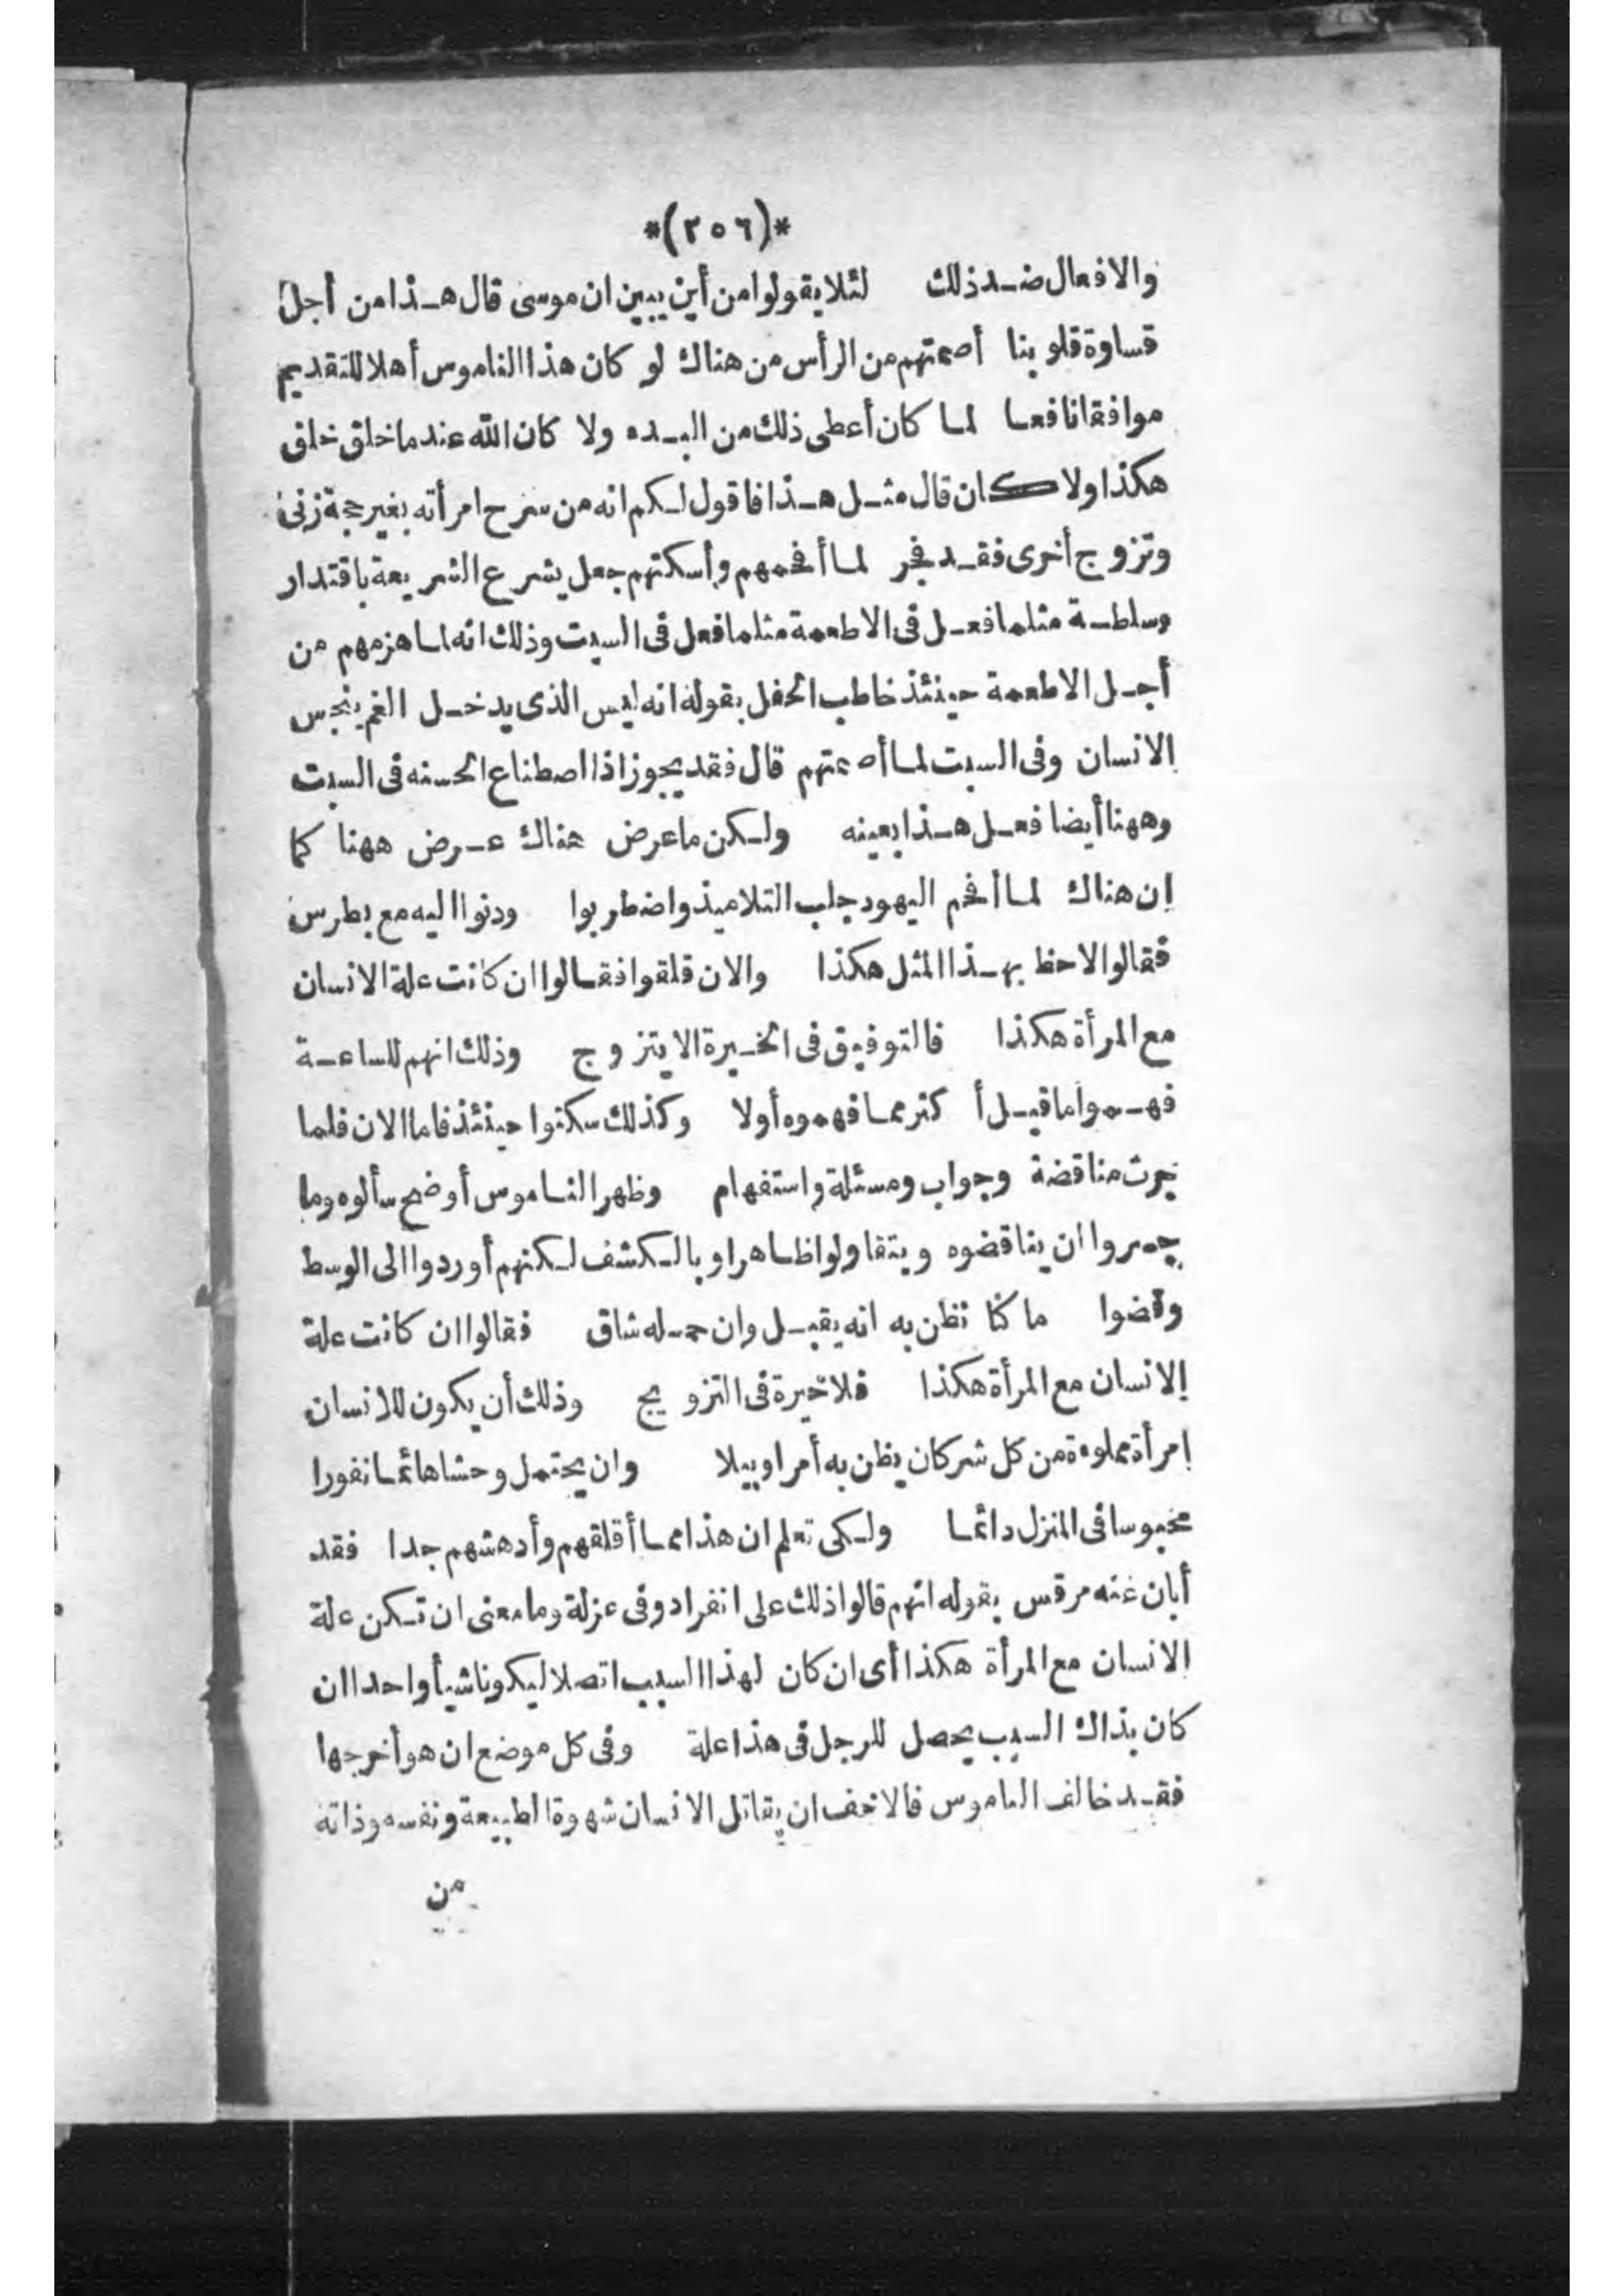 *(٢٥٦)*
والافعال ضد ذلك لئلا يقولوا من أين يبين ان موسى قال هذا من أجل
قساوة قلوبنا أصمتهم من الرأس من هناك لو كان هذا الناموس أهلا للتقديم
موافقا نافعا لما كان أعطى ذلك من البدء ولا كان الله عندما خلق خلق
هكذا ولا كان قال مثل هذا فاقول لكم انه من سرح امرأته بغير حجة زنى
وتزوج أخرى فقد فجر لما أفحمهم وأسكتهم جعل يشرع الشريعة باقتدار
وسلطة مثلما فعل فى الاطعمة مثلما فعل فى السبت وذلك انه لما هزمهم من
أجل الاطعمة حينئذ خاطب الحفل بقوله انه ليس الذى يدخل الفم ينجس
الانسان وفى السبت لما أصمتهم قال فقد يجوز اذا اصطناع الحسنه فى السبت
وههنا أيضا فعل هذا بعينه ولكن ما عرض هناك عرض ههنا كما
ان هناك لما أفحم اليهود جلب التلاميذ واضطربوا ودنوا اليه مع بطرس
فقالوا لاحظ بهذا المثل هكذا والان قلقوا فقالوا ان كانت علة الانسان
مع المرأة هكذا فالتوفيق فى الخيرة الا يتزوج وذلك انهم للساعة
فهموا ما قيل أكثر مما فهموه أولا وكذلك سكتوا حينئذ فاما الان فلما
جرت مناقضة وجواب ومسئلة واستفهام وظهر الناموس أوضح سألوه وما
جسروا ان يناقضوه ويتقاولوا ظاهرا وبالكشف لكنهم أوردوا الى الوسط
وقضوا ما كنا نظن به انه يقبل وان حمله شاق فقالوا ان كانت علة
الانسان مع المرأة هكذا فلا خيرة فى التزويج وذلك أن يكون للانسان
امرأة مملوءة من كل شر كان يظن به أمرا وبيلا وان يحتمل وحشا هائما نفورا
محبوسا فى المنزل دائما ولكى تعلم ان هذا مما أقلقهم وأدهشهم جدا فقد
أبان عنه مرقس بقوله انهم قالوا ذلك على انفراد وفى عزلة وما معنى ان تكن علة
الانسان مع المرأة هكذا أى ان كان لهذا السبب اتصلا ليكونا شيأ واحدا ان
كان بذاك السبب يحصل للرجل فى هذا علة وفى كل موضع ان هو أخرجها
فقد خالف الناموس فالاخف ان يقاتل الانسان شهوة الطبيعة ونفسه وذاته
من